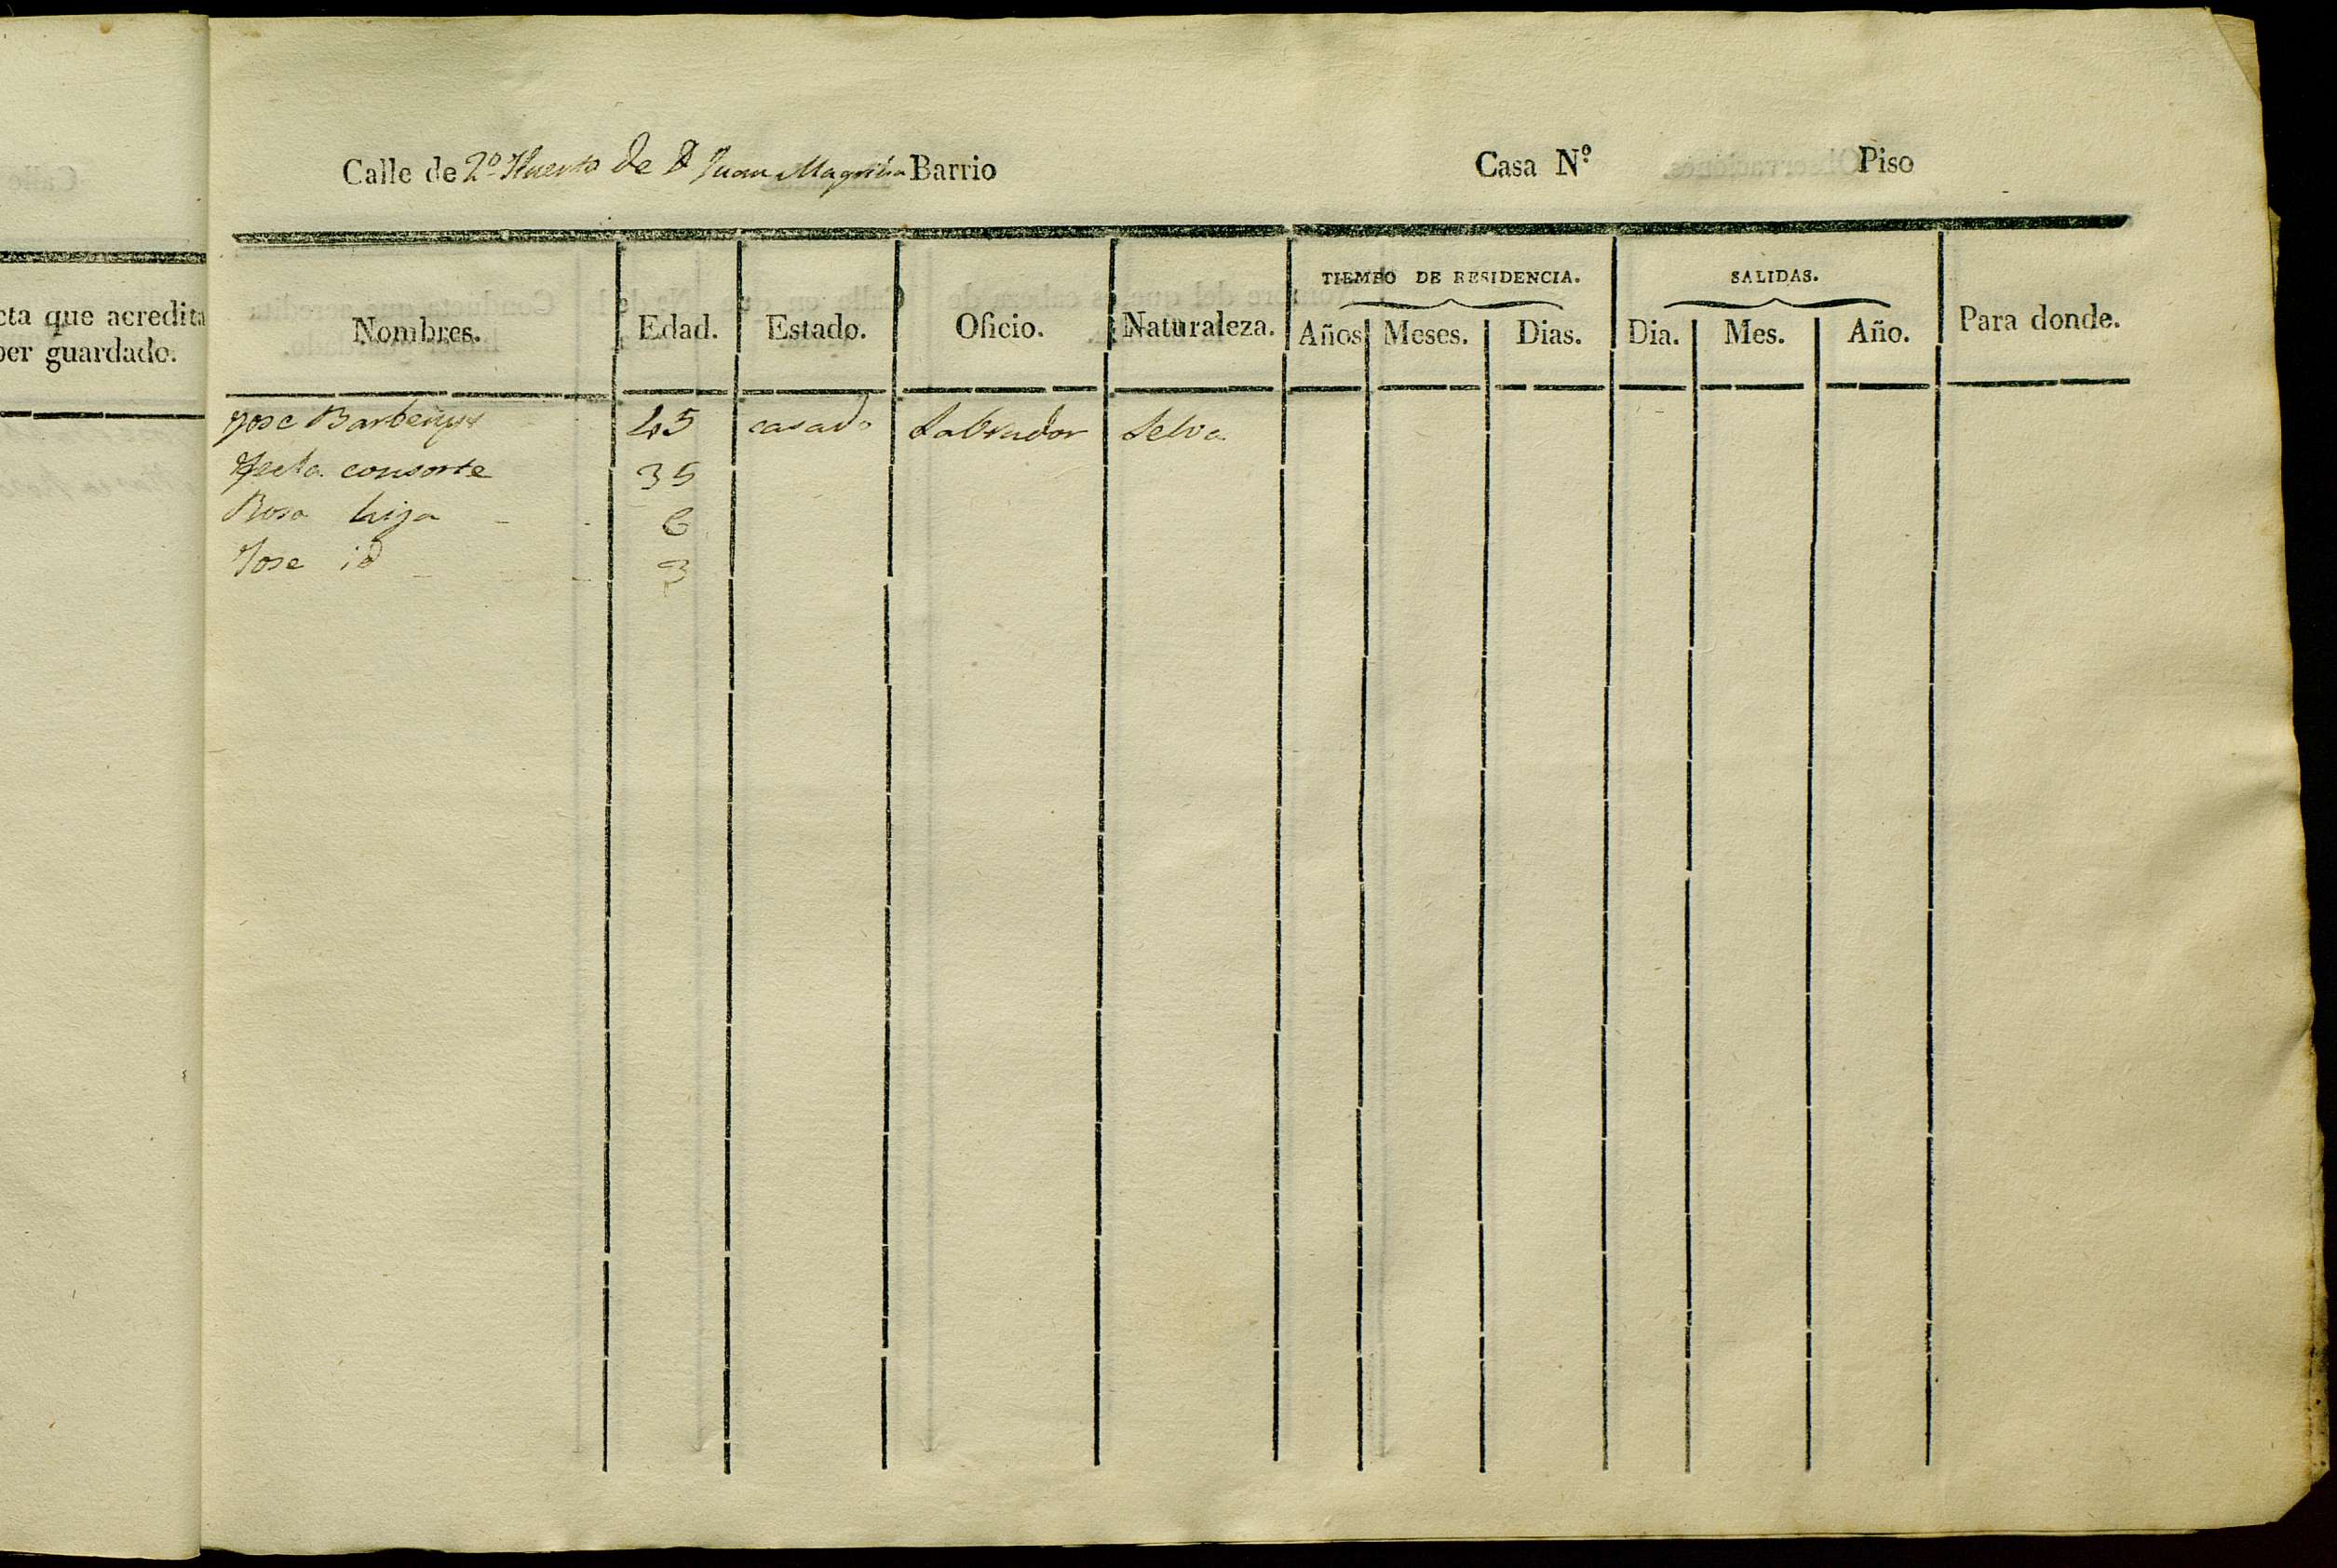 cta que acredita
ber guardado.
Calle de 2º Huerto de D Juan Magriña Barrio Casa Nº Piso
TIEMPO DE RESIDENCIA. SALIDAS.
Nombres. Edad. Estado. Oficio. Naturaleza. Años Meses. Dias. Dia. Mes. Año. Para donde.
Jose Barbenys 45 casado Labrador Selva
Tecla consorte 35
Rosa hija 6
Jose id 3